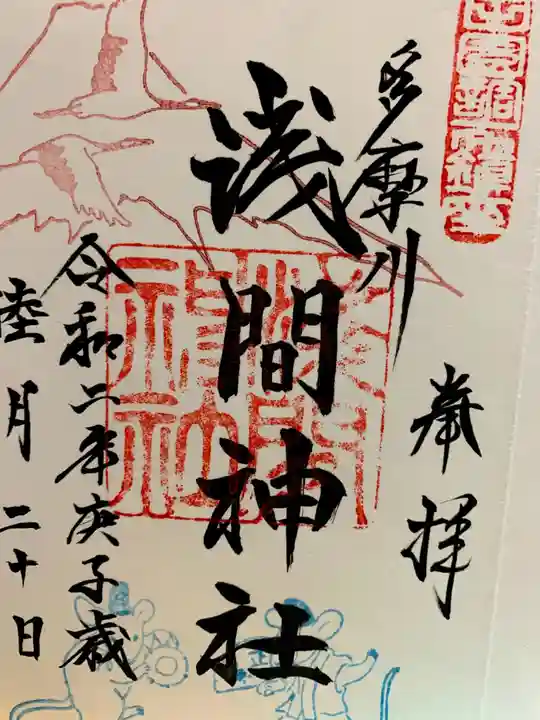 奉拝
多摩川
浅間神社
令和二年庚子歳
陸月二十日
浅間神社